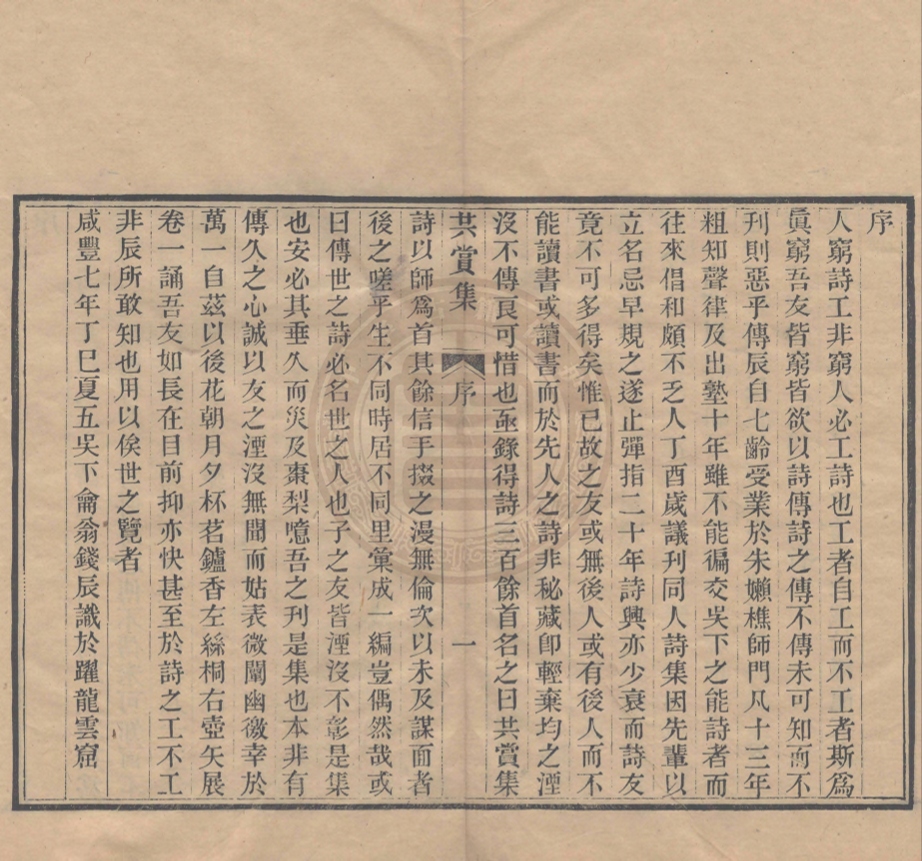 序
人窮詩工非窮人必工詩也工者自工而不工者斯爲
眞窮吾友皆窮皆欲以詩傳詩之傳不傳未可知而不
刋則惡乎傳辰自七齡受業於朱嬾樵師門凡十三年
粗知聲律及出塾十年雖不能徧交吳下之能詩者而
往來倡和頗不乏人丁酉歲議刋同人詩集因先輩以
立名忌早規之遂止彈指二十年詩興亦少衰而詩友
竟不可多得矣惟已故之友或無後人或有後人而不
能讀書或讀書而於先人之詩非秘藏卽輕棄均之湮
沒不傳良可惜也亟錄得詩三百餘首名之曰共賞集
共賞集 序 一
詩以師爲首其餘信手掇之漫無倫次以未及謀面者
後之嗟乎生不同時居不同里彙成一編豈偶然哉或
曰傳世之詩必名世之人也子之友皆湮沒不彰是集
也安必其垂久而災及棗梨噫吾之刋是集也本非有
傳久之心誠以友之湮沒無聞而姑表微闡幽徼幸於
萬一自茲以後花朝月夕杯茗鑪香左絲桐右壺矢展
卷一誦吾友如長在目前抑亦快甚至於詩之工不工
非辰所敢知也用以俟世之覽者
咸豐七年丁巳夏五吳下龠翁錢辰識於躍龍雲窟